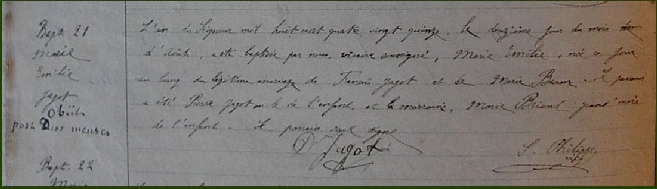 Bapt. 21
Marie
Emilie
Jagot
Obiit
post Duos menses
L'an du Seigneur mil huit cent quatre vingt quinze, le douzième jour du mois
d'Août, a été baptisée par nous, vicaire soussigné, Marie Emilie, née ce jour
du légitime mariage de François Jagot et de Marie Baron. Le parrain
a été Pierre Jagot oncle de l'enfant, et la marraine, Marie Briand grand'mère
de l'enfant. Le parrain seul signe
P. Jagot
S. Philippe
vic.
Bapt. 22
Marie